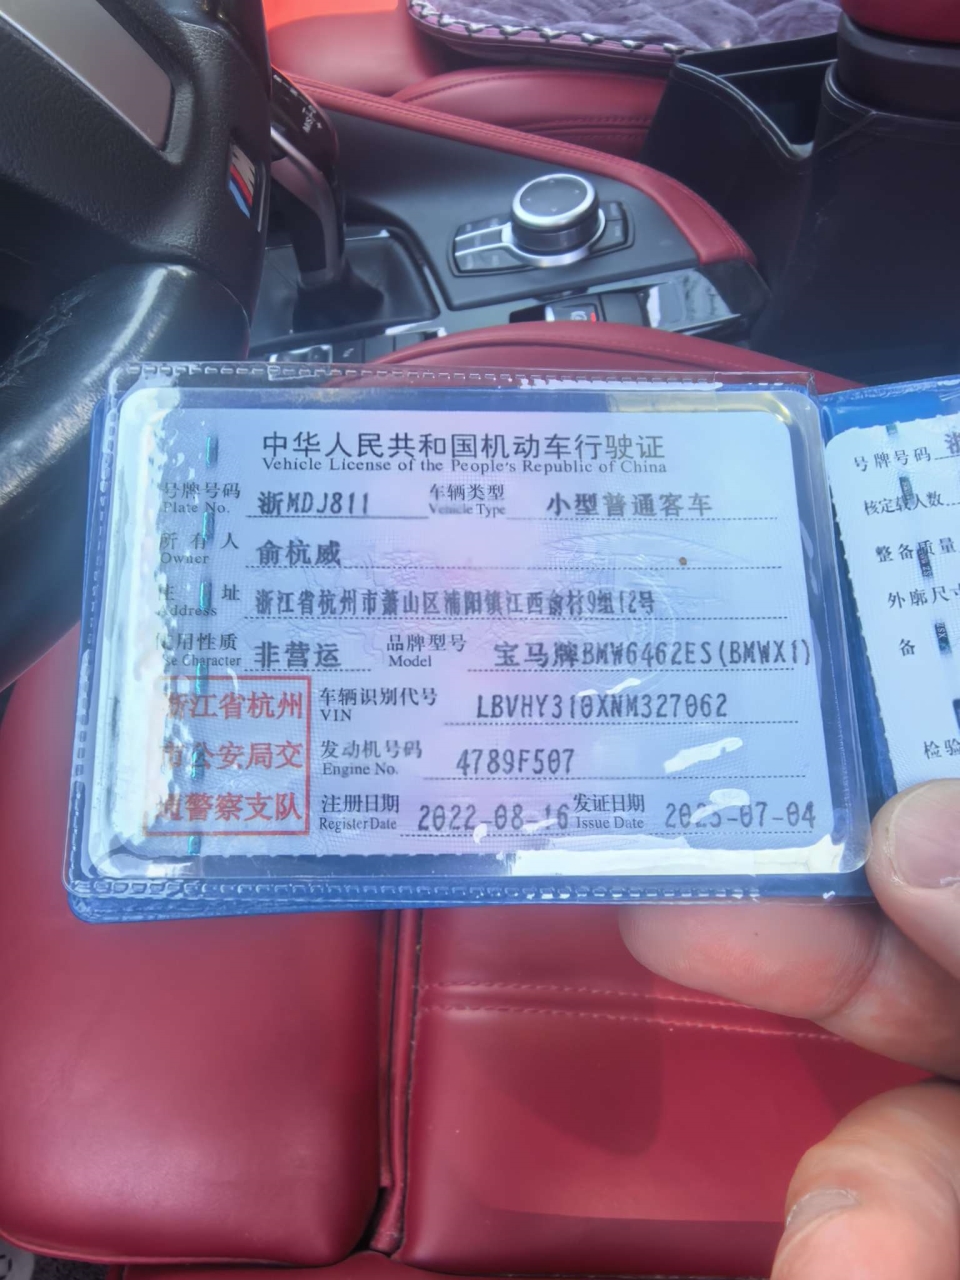 中华人民共和国机动车行驶证
Vehicle License of the People's Republic of China
号牌号码 浙MDJ811 车辆类型 小型普通客车
Plate No. Vehicle Type
所有人 俞杭威
Owner
住址 浙江省杭州市萧山区浦阳镇江西俞村9组12号
Address
使用性质 非营运 品牌型号 宝马牌BMW6462ES(BMWX1)
Use Character Model
浙江省杭州
市公安局交
通警察支队
车辆识别代号 LBVHY310XNM327062
VIN
发动机号码 4789F507
Engine No.
注册日期 2022-08-16 发证日期 -07-04
Register Date Issue Date
号牌号码 浙
核定载人数
整备质量
外廓尺寸
备
检验
M